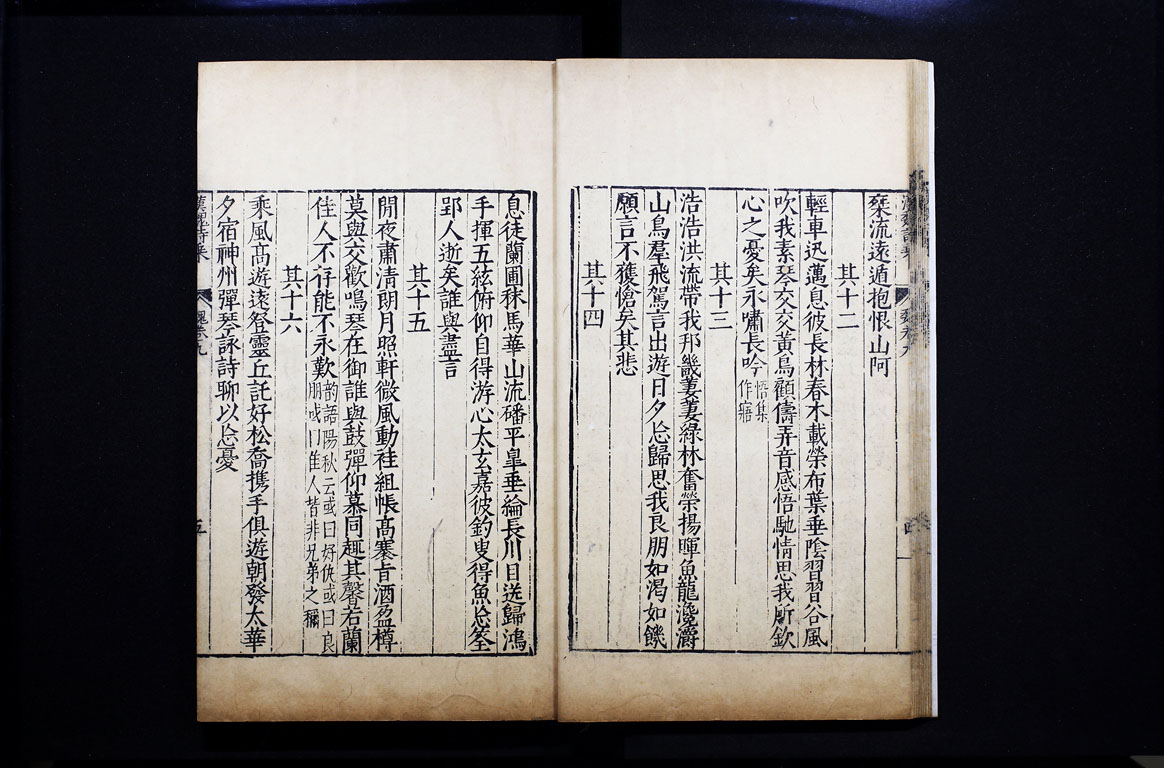 漢魏詩集 魏卷九 四
椉流遠遁抱恨山阿
其十二
輕車迅邁息彼長林春木載榮布葉垂陰習習谷風
吹我素琴交交黃鳥顧儔弄音感悟馳情思我所欽
心之憂矣永嘯長吟悟集作寤
其十三
浩浩洪流帶我邦畿萋萋綠林奮榮揚暉魚龍瀺灂
山鳥羣飛駕言出遊日夕忘歸思我良朋如渴如饑
願言不獲愴矣其悲
其十四
息徒蘭圃秣馬華山流磻平皐垂綸長川目送歸鴻
手揮五絃俯仰自得游心太玄嘉彼釣叟得魚忘筌
郢人逝矣誰與盡言
其十五
閒夜肅清朗月照軒微風動袿組帳高褰旨酒盈樽
莫與交歡鳴琴在御誰與鼓彈仰慕同趣其馨若蘭
佳人不存能不永歎韵語陽秋云或曰好仇或曰良朋或曰佳人皆非兄弟之稱
其十六
乘風高遊遠登靈丘託好松喬携手俱遊朝發太華
夕宿神州彈琴詠詩聊以忘憂
漢魏詩集 魏卷九 五